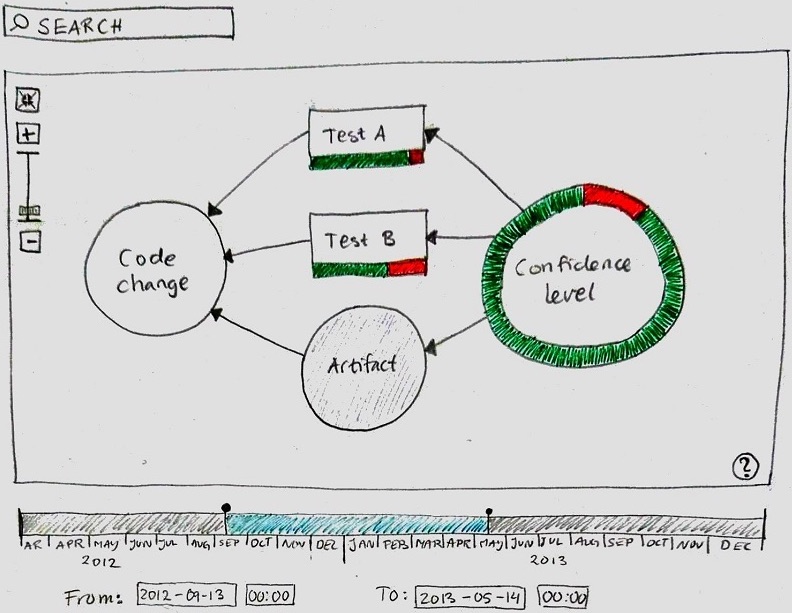 SEARCH
+
Test A
Test B
-
Code
change
Confidence
level
Artifact
?
AR APR MAY JUN JUL AUG SEP OCT NOV DEC JAN FEB MAR APR MAY JUN JUL AUG SEP OCT NOV DEC
2012 2013
From: 2012-09-13 00:00 To: 2013-05-14 00:00